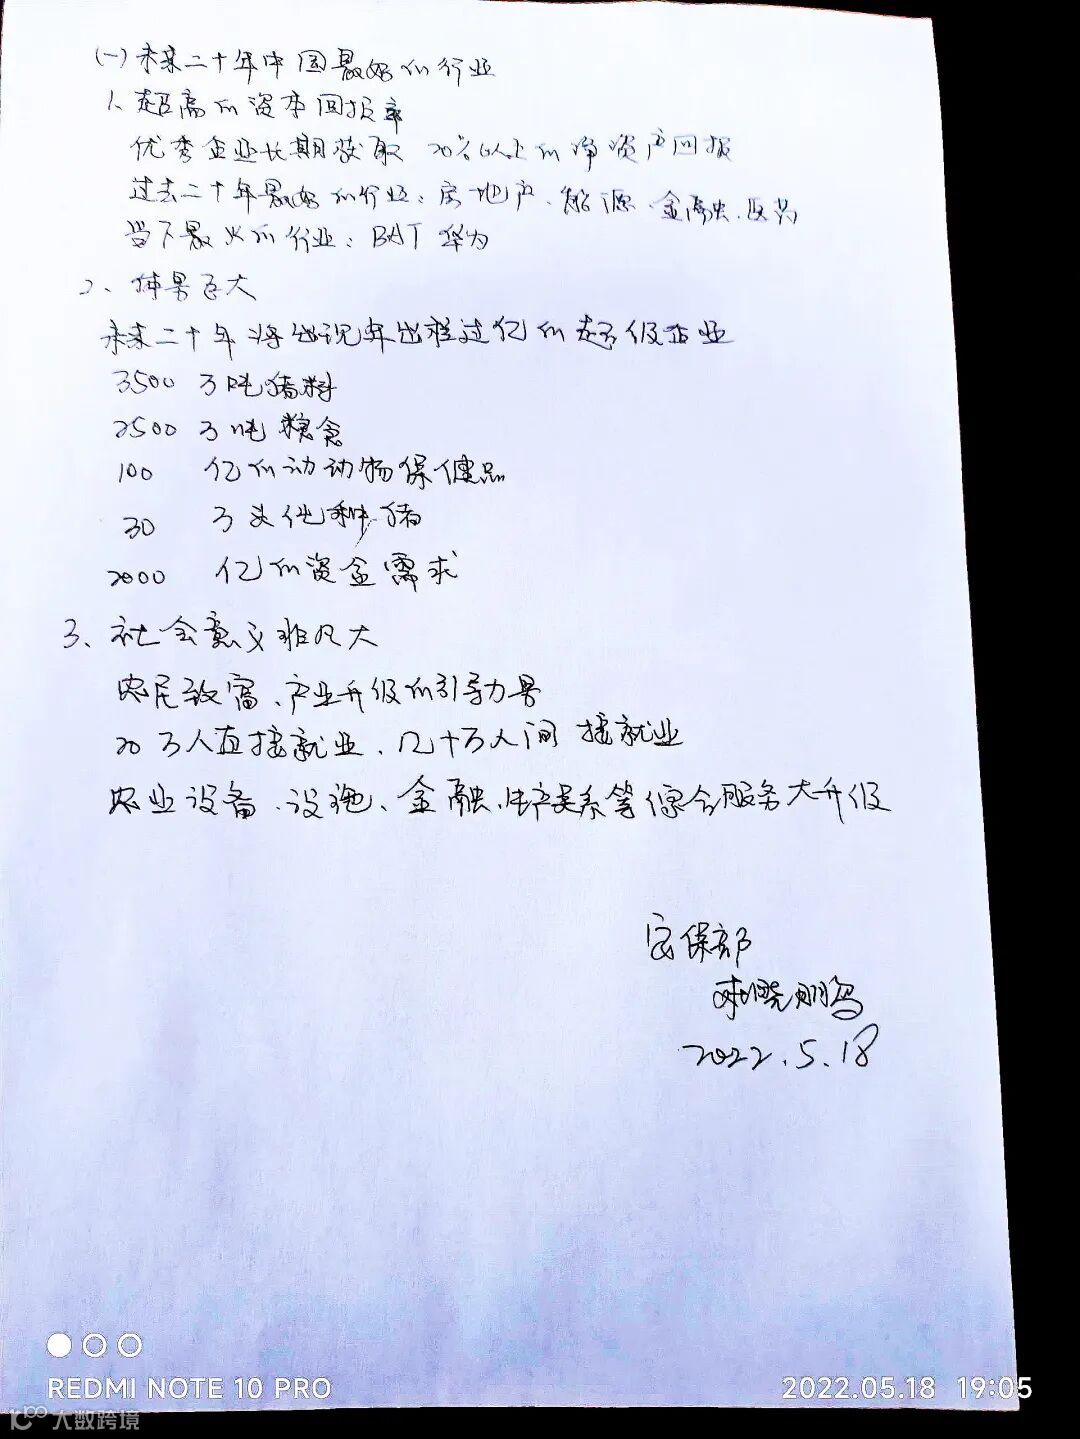 (一)未来二十年中国最好的行业
1、超高的资本回报率
优秀企业长期获取 20%以上的净资产回报
过去二十年最好的行业：房地产、能源、金融、医药
当下最火的行业：BAT 华为
2、体量巨大
未来二十年将出现年出栏过亿的超级企业
3500 万吨猪料
2500 万吨粮食
100 亿的动动物保健品
30 万头优种猪
2000 亿的资金需求
3、社会意义非凡大
农民致富、产业升级的引导力量
20万人直接就业、几十万人间接就业
农业设备、设施、金融、生产关系等综合服务大升级
安保部
晓鹏
2022.5.18
REDMI NOTE 10 PRO
2022.05.18 19:05
大数跨境